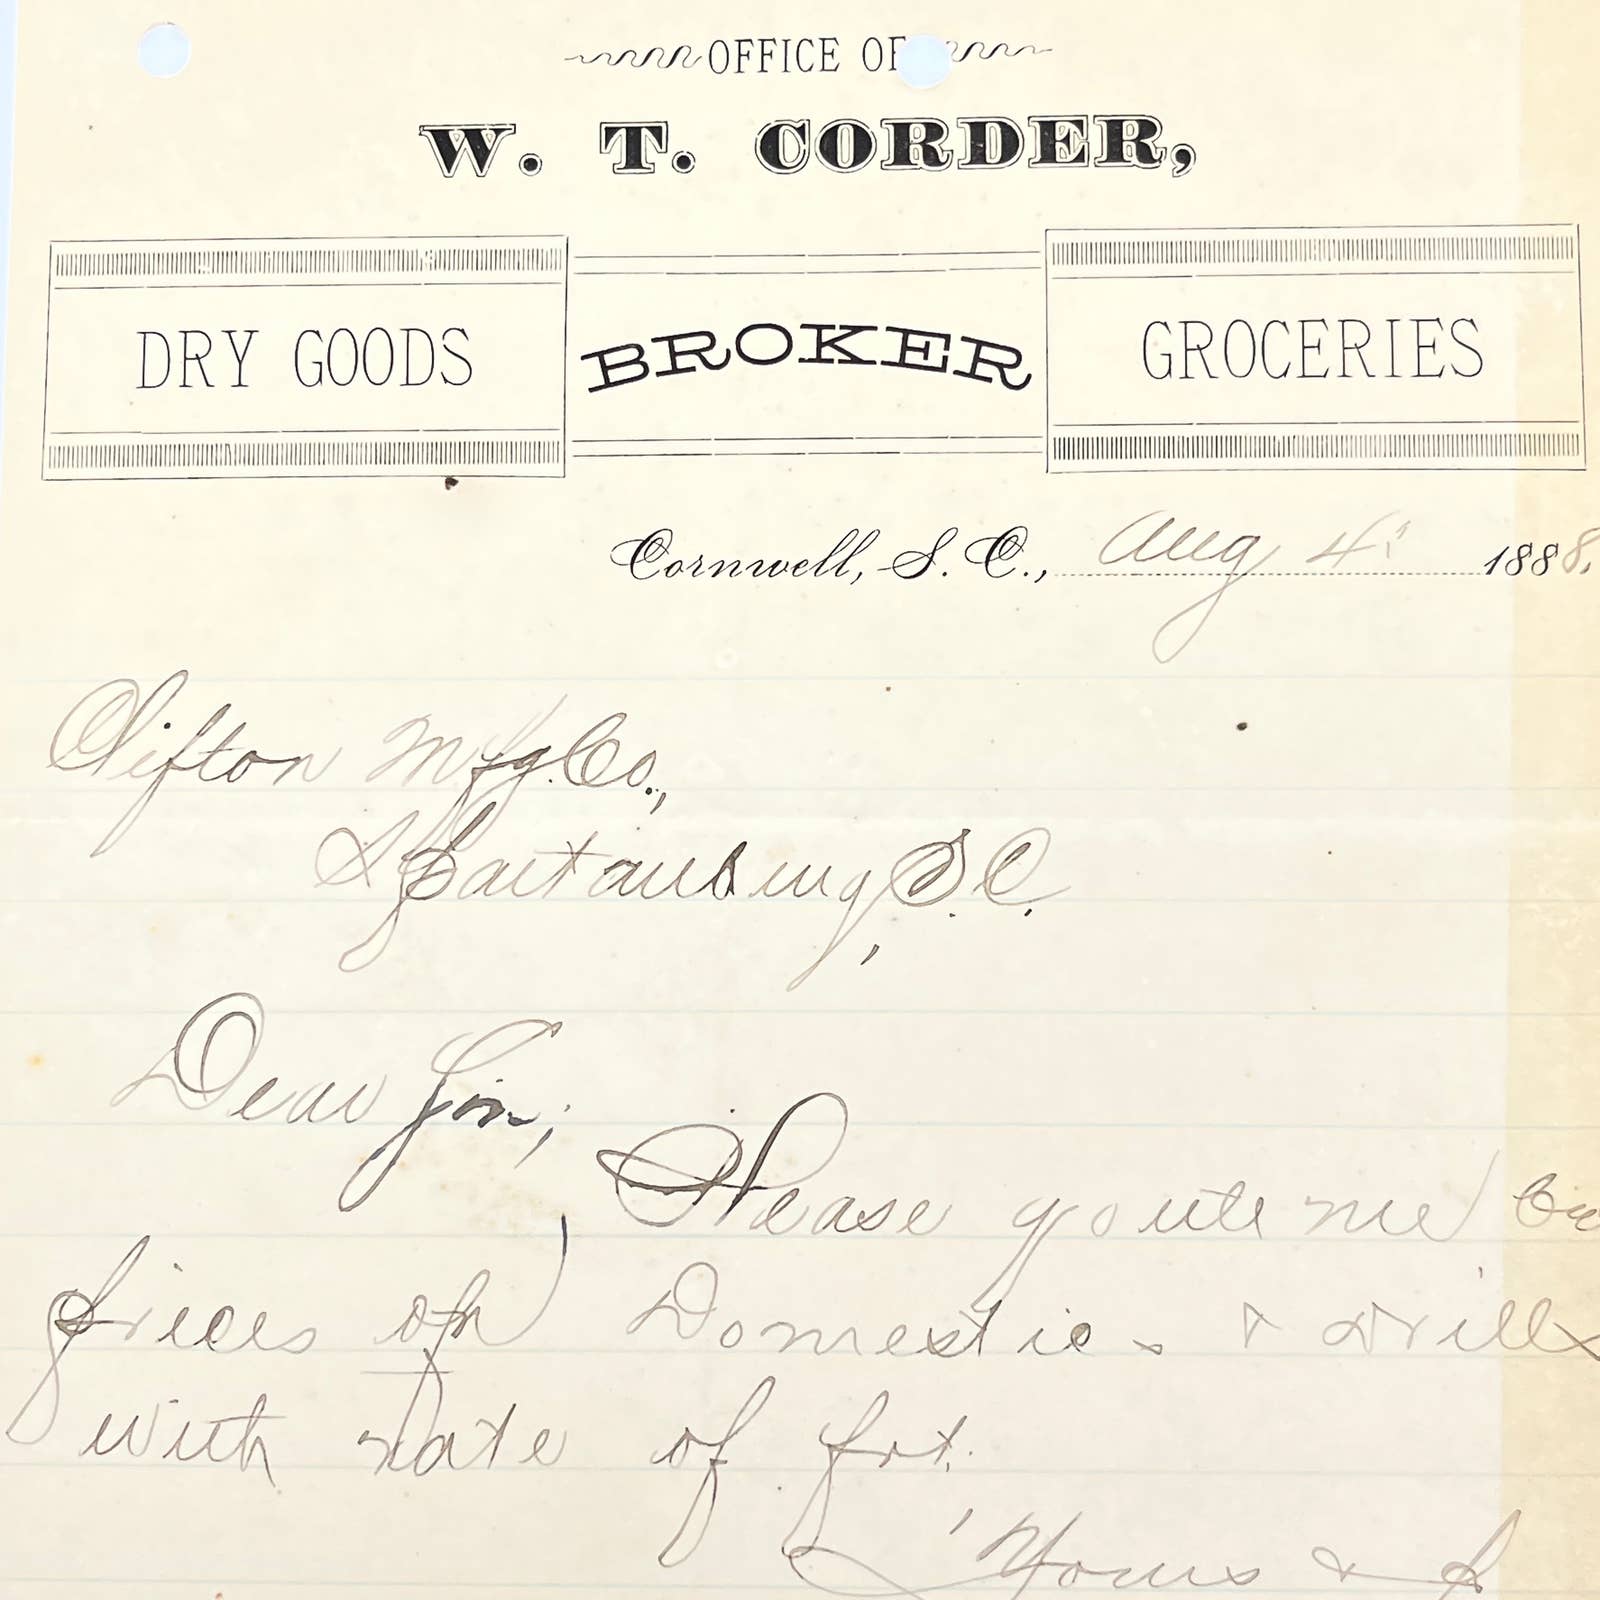 OFFICE OF
W. T. CORDER,
DRY GOODS BROKER GROCERIES
Cornwell, S. C., Aug 4" 1888.
Clifton Mfg. Co.,
Spartanburg, S. C.
Dear Sir;
Please quote me
prices on Domestics & Drills
with rate of frt.
Yours &